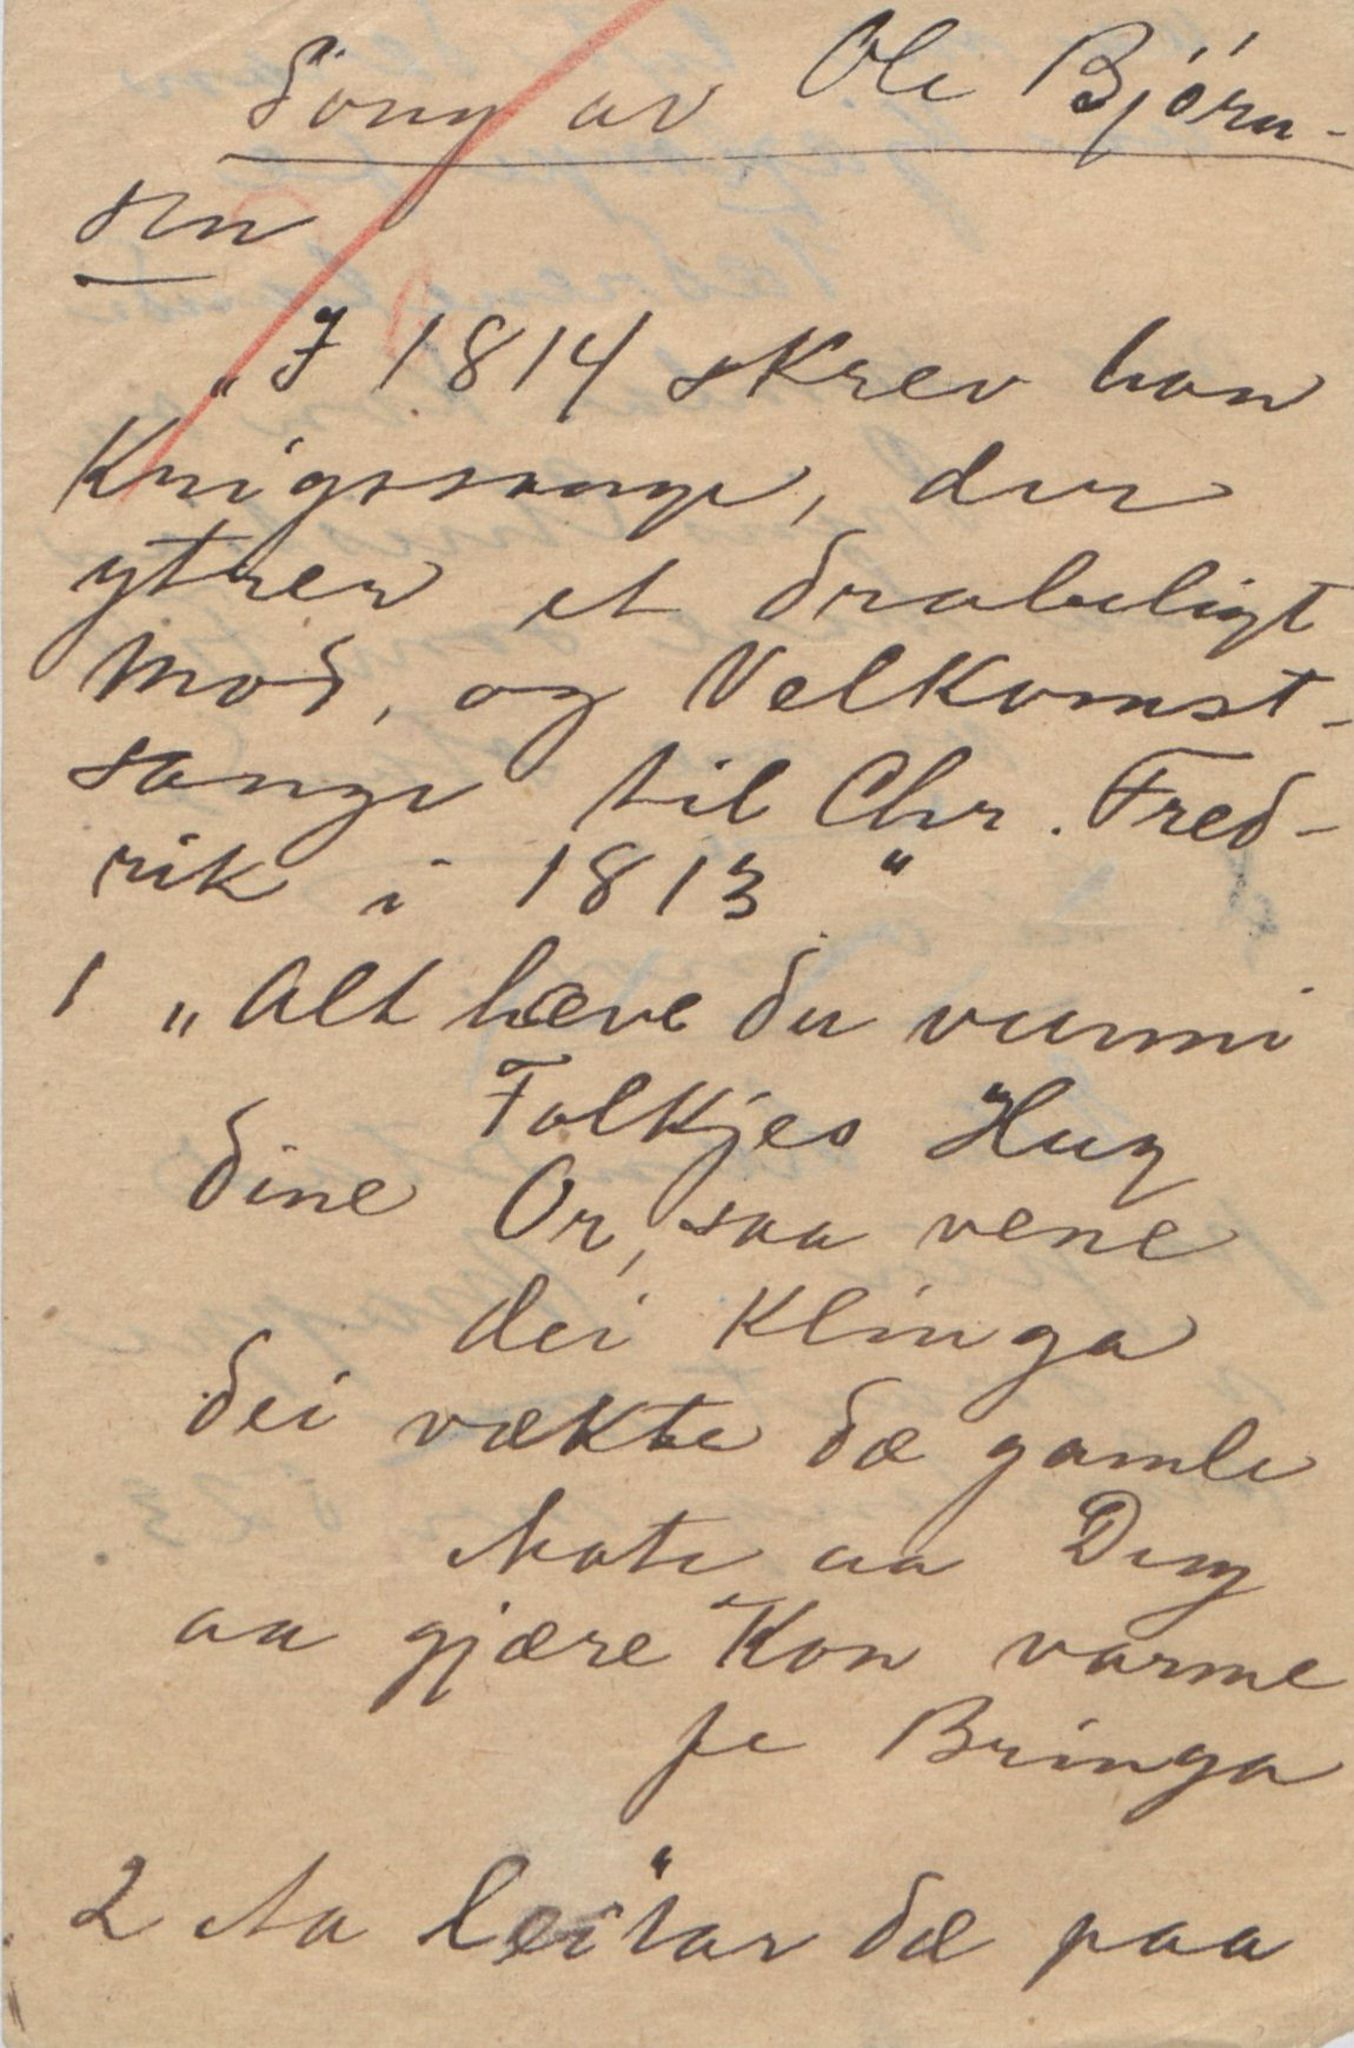 Song av Ole Björn-
sen
"I 1814 skrev han
Krigssange, der
ytrer et drabeligt
Mod, og Velkomst-
sange til Chr. Fred-
rik i 1813"
1 "Alt hæve du vunni
Folkjes Hug
dine Or, saa vene
dei Klinga
dei vækte dæ gamle
Mot aa Dug
aa gjære Kon varme
fe Bringa
2 Aa leitar dæ paa